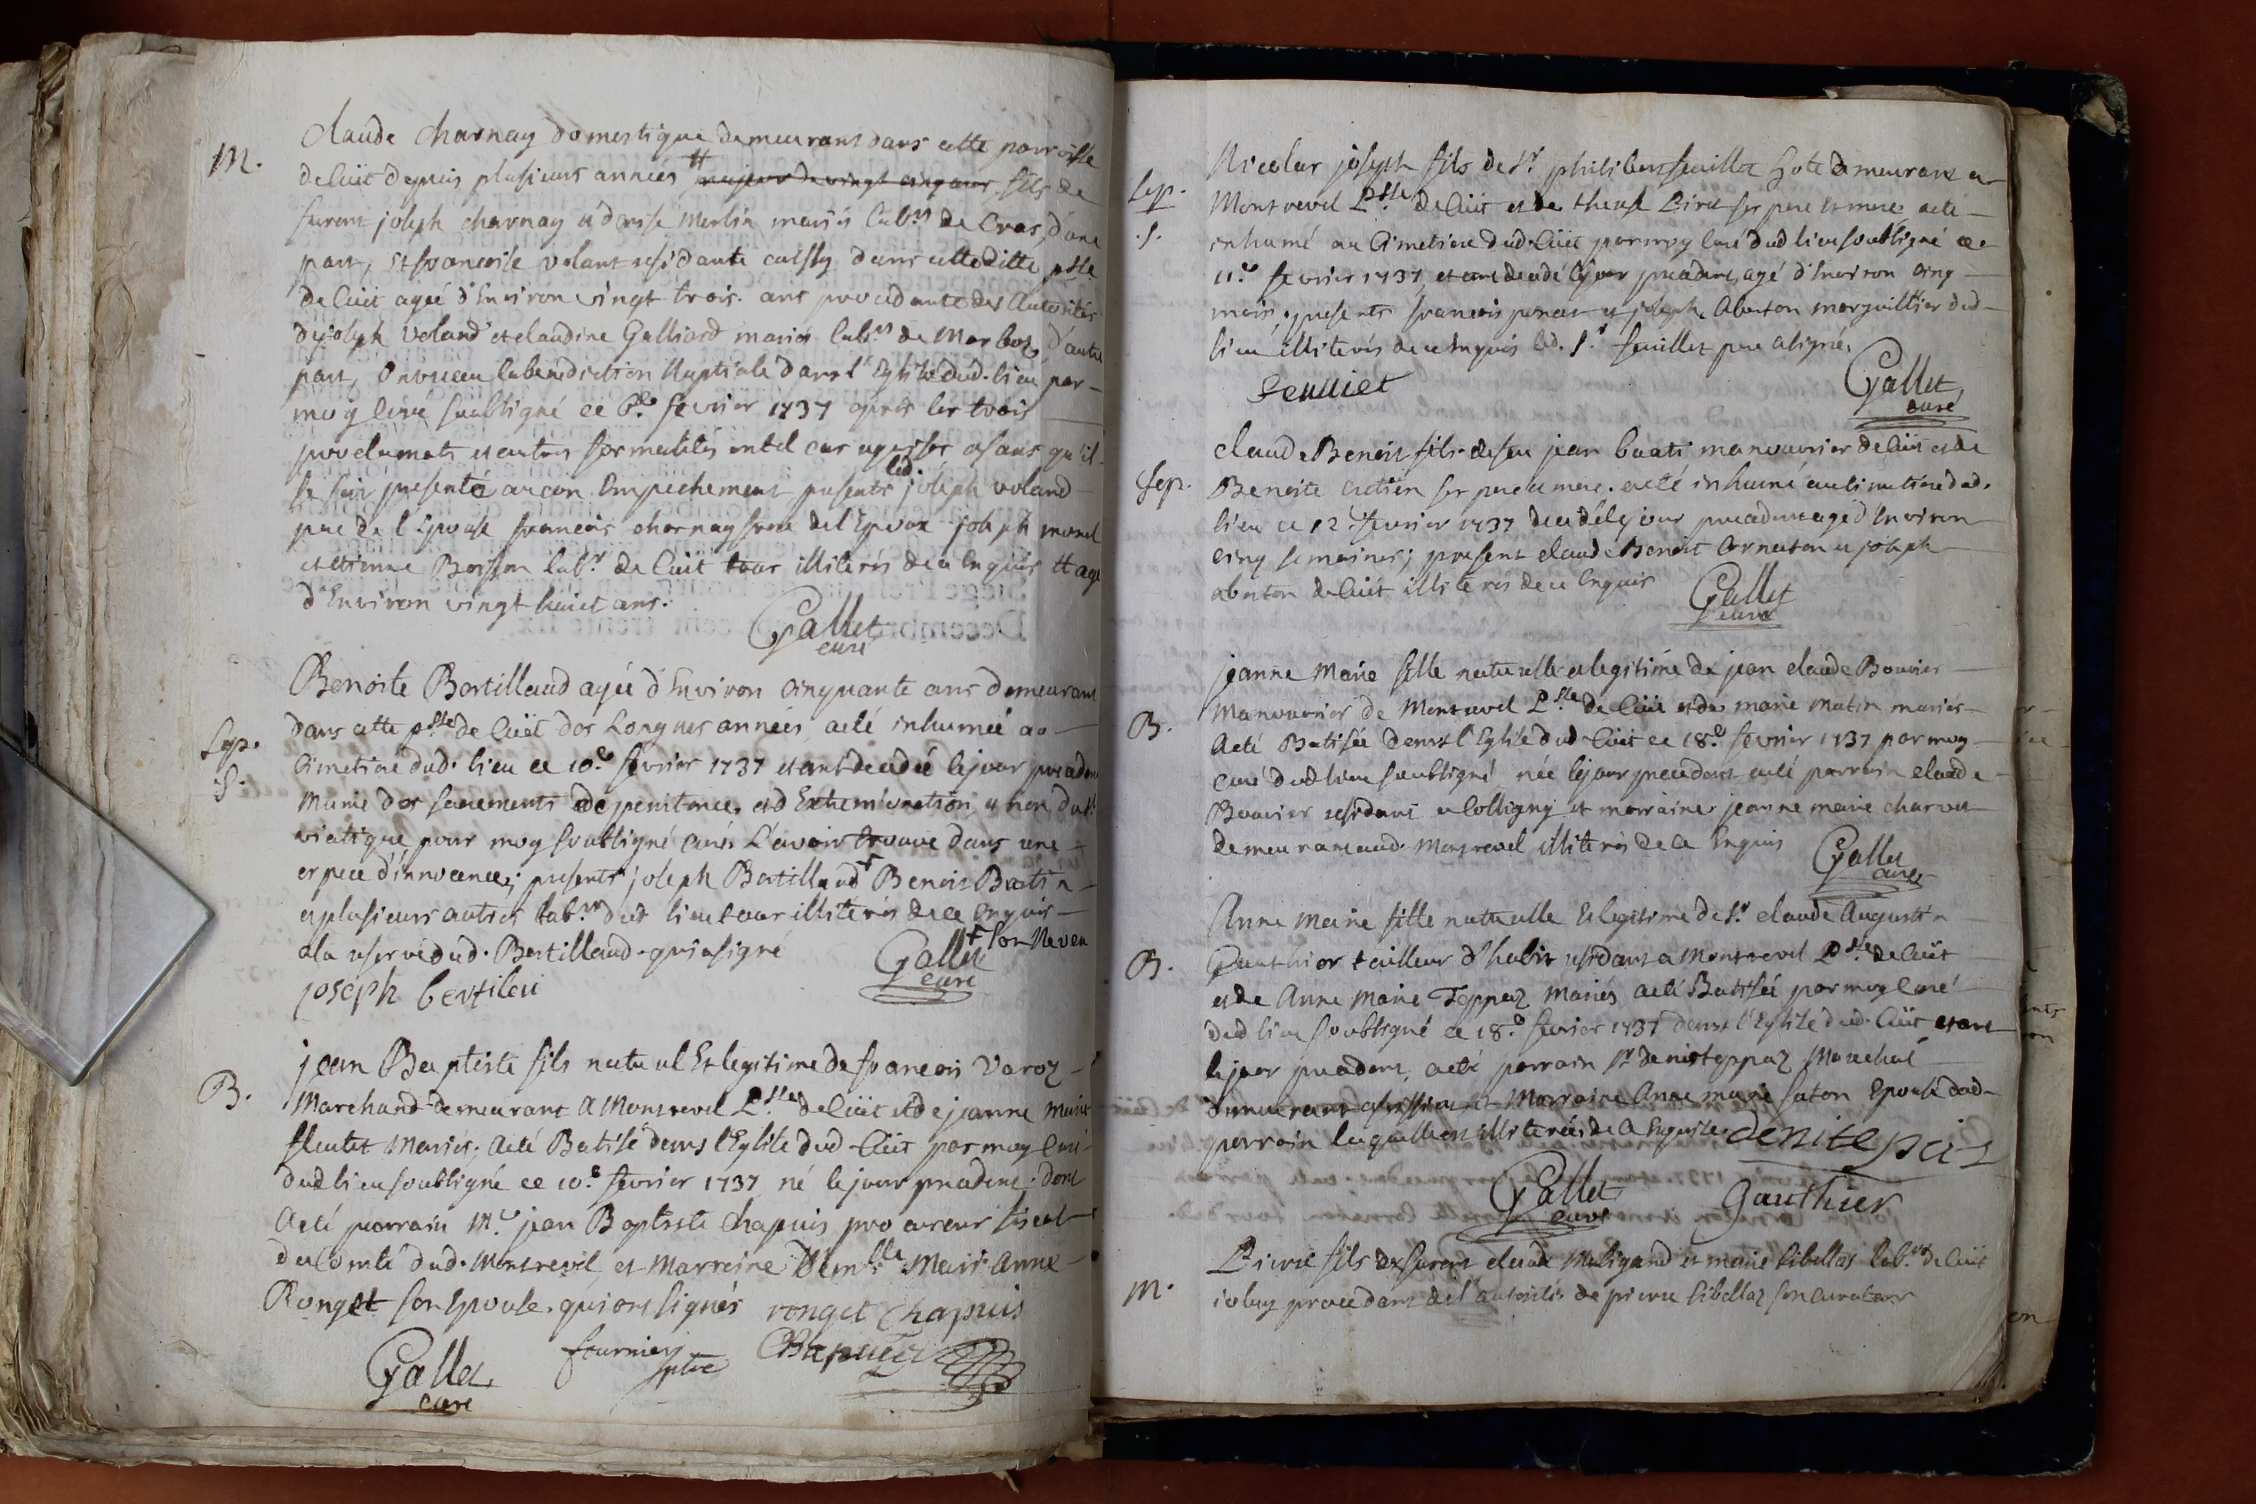 M.
Claude Charnay domestique demeurant dans cette parroisse
de Cuët depuis plusieurs années # majeur de vingt cinq ans, fils de
furent joseph charnay et denise Merlin mariés lab.rs de Cras, d'une
part, et francoise volant residante aussy dans cette ditte psse
de Cuët agée d'Environ vingt trois ans procedante des autorités
de joseph voland et claudine Galliard mariés lab.rs de Marboz, d'autre
part, Ont receu la benediction Nuptiale dans l'Eglise dud. lieu par
moy Curé soubsigné ce 6.e fevrier 1737 apres les trois
proclamats et autres formalités en tel cas requises et sans qu'il
se soit presenté aucun Empechement presents led. joseph voland
pere de l'Epouse francois charnay frere de l'Epoux joseph morel
et etienne Boisson lab.r de Cuët tous illiterés de ce Enquis # agé
d'Environ vingt huict ans.
Gallet
curé
Sep.
S.
Benoite Bertillaud agée d'Environ cinquante ans demeurant
dans cette p.sse de Cuët des Longues années a eté inhumée au
Cimetiere dud. lieu ce 10.e fevrier 1737 etant decedée le jour precedent
Munie des sacrements de penitence et d'Extremeonction, et non du st
viatique, pour moy soubsigné Curé L'avoir trouvé dans une
espece d'innocence; presents joseph Bertillaud + Benoit Bratin
et plusieurs autres lab.rs dud lieu tous illiterés de ce enquis
a la reserve dud. Bertillaud qui a signé
+ son Neveu
joseph bertileu
Gallet
curé
B.
jean Baptiste fils naturel Et legitime de francois Varoz
Marchand demeurant a Montrevel P.sse de Cuët et de jeanne Marie
fleutet Mariés. a eté Batisé dans l'Eglise dud. Cuët par moy Curé
dud lieu soubsigné ce 10.e fevrier 1737 né le jour precedent. dont
a eté parrain M.e jean Baptiste Chapuis procureur fiscal
du Comté dud. Montrevel, et Marreine Dem.lle Marie Anne
Ronget son Epouse. qui ont signés ronget Chapuis
fournier ptre Chapuis
Gallet
curé
Sep.
S.
Nicolas joseph fils de S.r philibert feuillet hote demeurant a
Montrevel P.sse de Cuët et de therese Piret ses pere et mere, a eté
inhumé au Cimetiere dud. Cuët par moy Curé dud lieu soubsigné ce
11.e fevrier 1737, etant decedé le jour precedent, agé d'Environ cinq
mois, presents francois perret et joseph Aberton marguillier dud
lieu illiterés de ce Enquis led. S.r feuillet pere a signé.
feuillet
Gallet
curé
Sep.
claude Benoit fils de feu jean buati manouvrier de Cuët et de
Benoite cretien ses pere et mere. a eté inhumé au Cimetiere dud.
lieu ce 12 fevrier 1737 decedé le jour precedent agé d'Environ
cinq semaines; present claude Benoit Corneton et joseph
aberton de Cuët illiterés de ce Enquis
Gallet
curé
B.
jeanne Marie fille naturelle et legitime de jean claude Bouvier
Manouvrier de Montrevel P.sse de Cuët et de marie Matin mariés
a eté Batisée dans l'Eglise dud Cuët ce 18.e fevrier 1737 par moy
Curé dud lieu soubsigné née le jour precedent a eté parrain claude
Bouvier residant a Colligny et marraine jeanne marie charvet
demeurant aud. Montrevel illiterés de ce Enquis
Gallet
curé
B.
Anne Marie fille naturelle Et legitime de S.r claude Augustin
Gauthier tailleur d'habit residant a Montrevel P.sse de Cuët
et de Anne Marie Teppaz Mariés a eté Batisée par moy Curé
dud lieu soubsigné ce 18.e fevrier 1737 dans l'Eglise dud. Cuët etant
le jour precedent, a eté parrain S.r denis teppaz Marechal
demeurant et Marraine Anne marie Epouse dud
parrain laquelle est illiterée de ce Enquise denis tepaz
Gallet
curé
Gauthier
M.
Pierre fils de furent claude Maligand et marie Sibellas lab.rs de Cuët
iceluy procedant de l'autorité de pierre Sibellaz son curateur